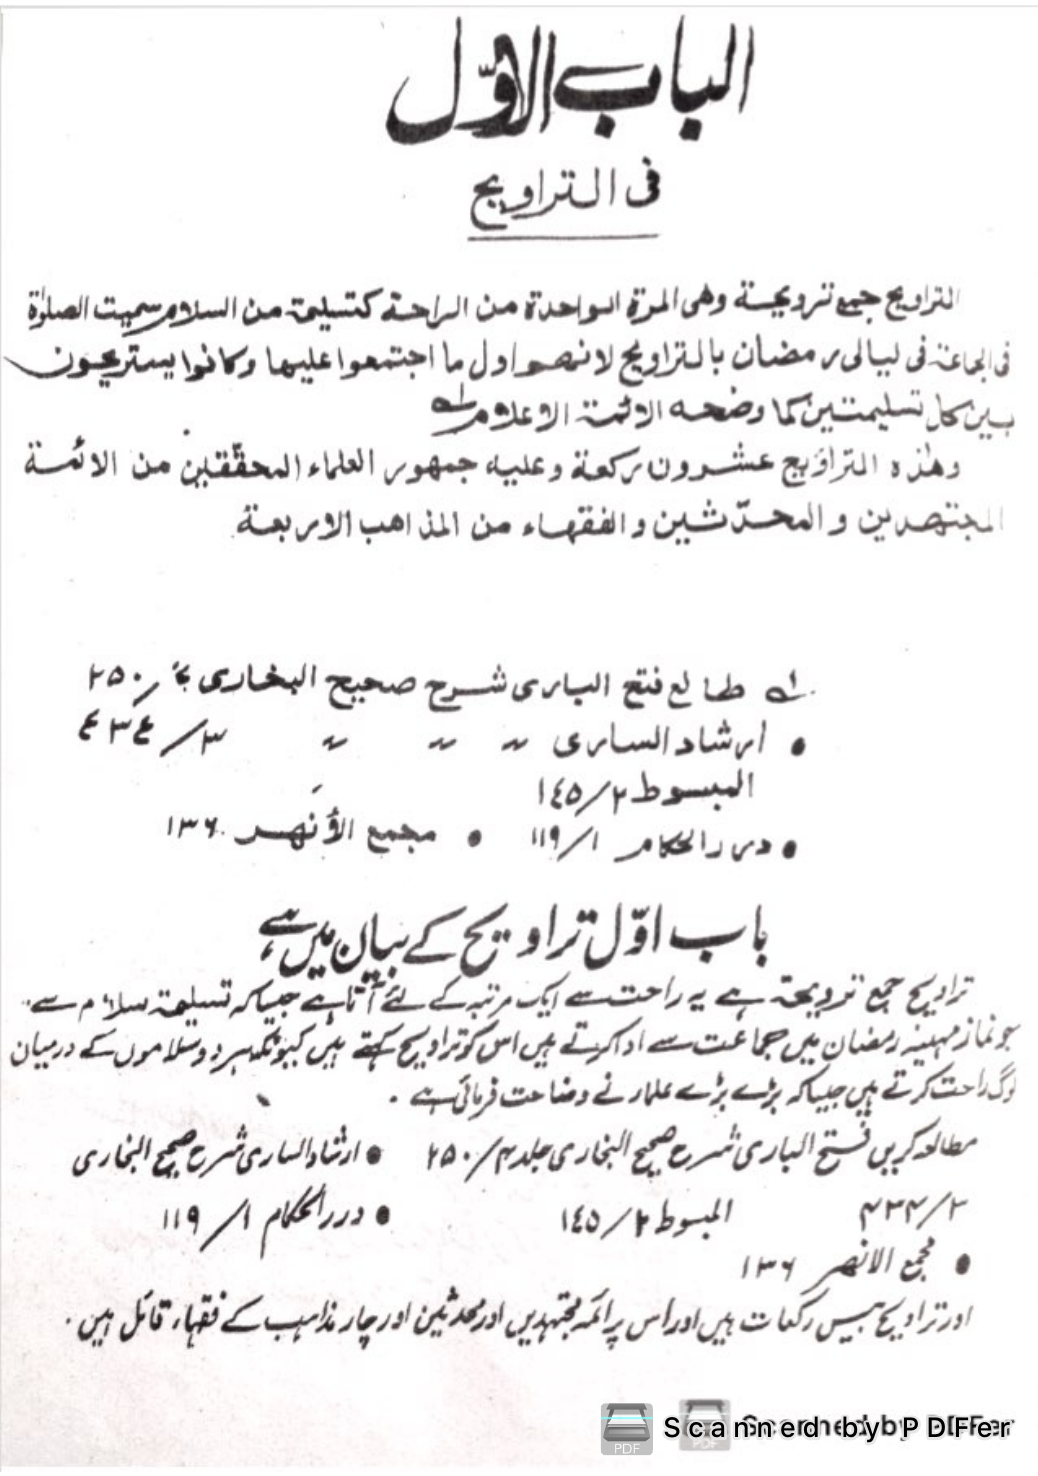 الباب الاوّل
فى التراويح
التراويح جمع ترويحة وهى المرة الواحدة من الراحة كتسليمة من السلام سميت الصلوٰة
فى الجماعة فى ليالى رمضان بالتراويح لانهم اول ما اجتمعوا عليها وكانوا يستريحون
بين كل تسليمتين كما وضحه الائمة الاعلام
وهٰذه التراويح عشرون ركعة وعليه جمهور العلماء المحقّقين من الائمة
المجتهدين و المحدّثين و الفقهاء من المذاهب الاربعة
طالع فتح البارى شرح صحيح البخارى ٢٥٠/
• ارشاد السارى 〃 〃 〃 ٣/٤٣٤
المبسوط ٢/١٤٥
• درر الحكام ١/١١٩ • مجمع الأنهر ١٣٦
باب اوّل تراویح کے بیان میں ہے
تراویح جمع ترویحۃ ہے یہ راحت سے ایک مرتبہ کے لئے آتا ہے جیسا کہ تسلیمۃ سلام سے۔
جو نماز مہینہ رمضان میں جماعت سے ادا کرتے ہیں اس کو تراویح کہتے ہیں کیونکہ ہر دو سلاموں کے درمیان
لوگ راحت کرتے ہیں جیسا کہ بڑے بڑے علماء نے وضاحت فرمائی ہے ۔
مطالعہ کریں فتح الباری شرح صحیح البخاری جلد ۴/۲۵۰ • ارشاد الساری شرح صحیح البخاری
۳/۴۳۴ المبسوط ۲/۱٤۵ • درر الحکام ۱/۱۱۹
• مجمع الانھر ۱۳۶
اور تراویح بیس رکعات ہیں اور اس پر ائمہ مجتہدین اور محدثین اور چار مذاہب کے فقہاء قائل ہیں ۔
Scanned by PDFer
Scanned by PDFer